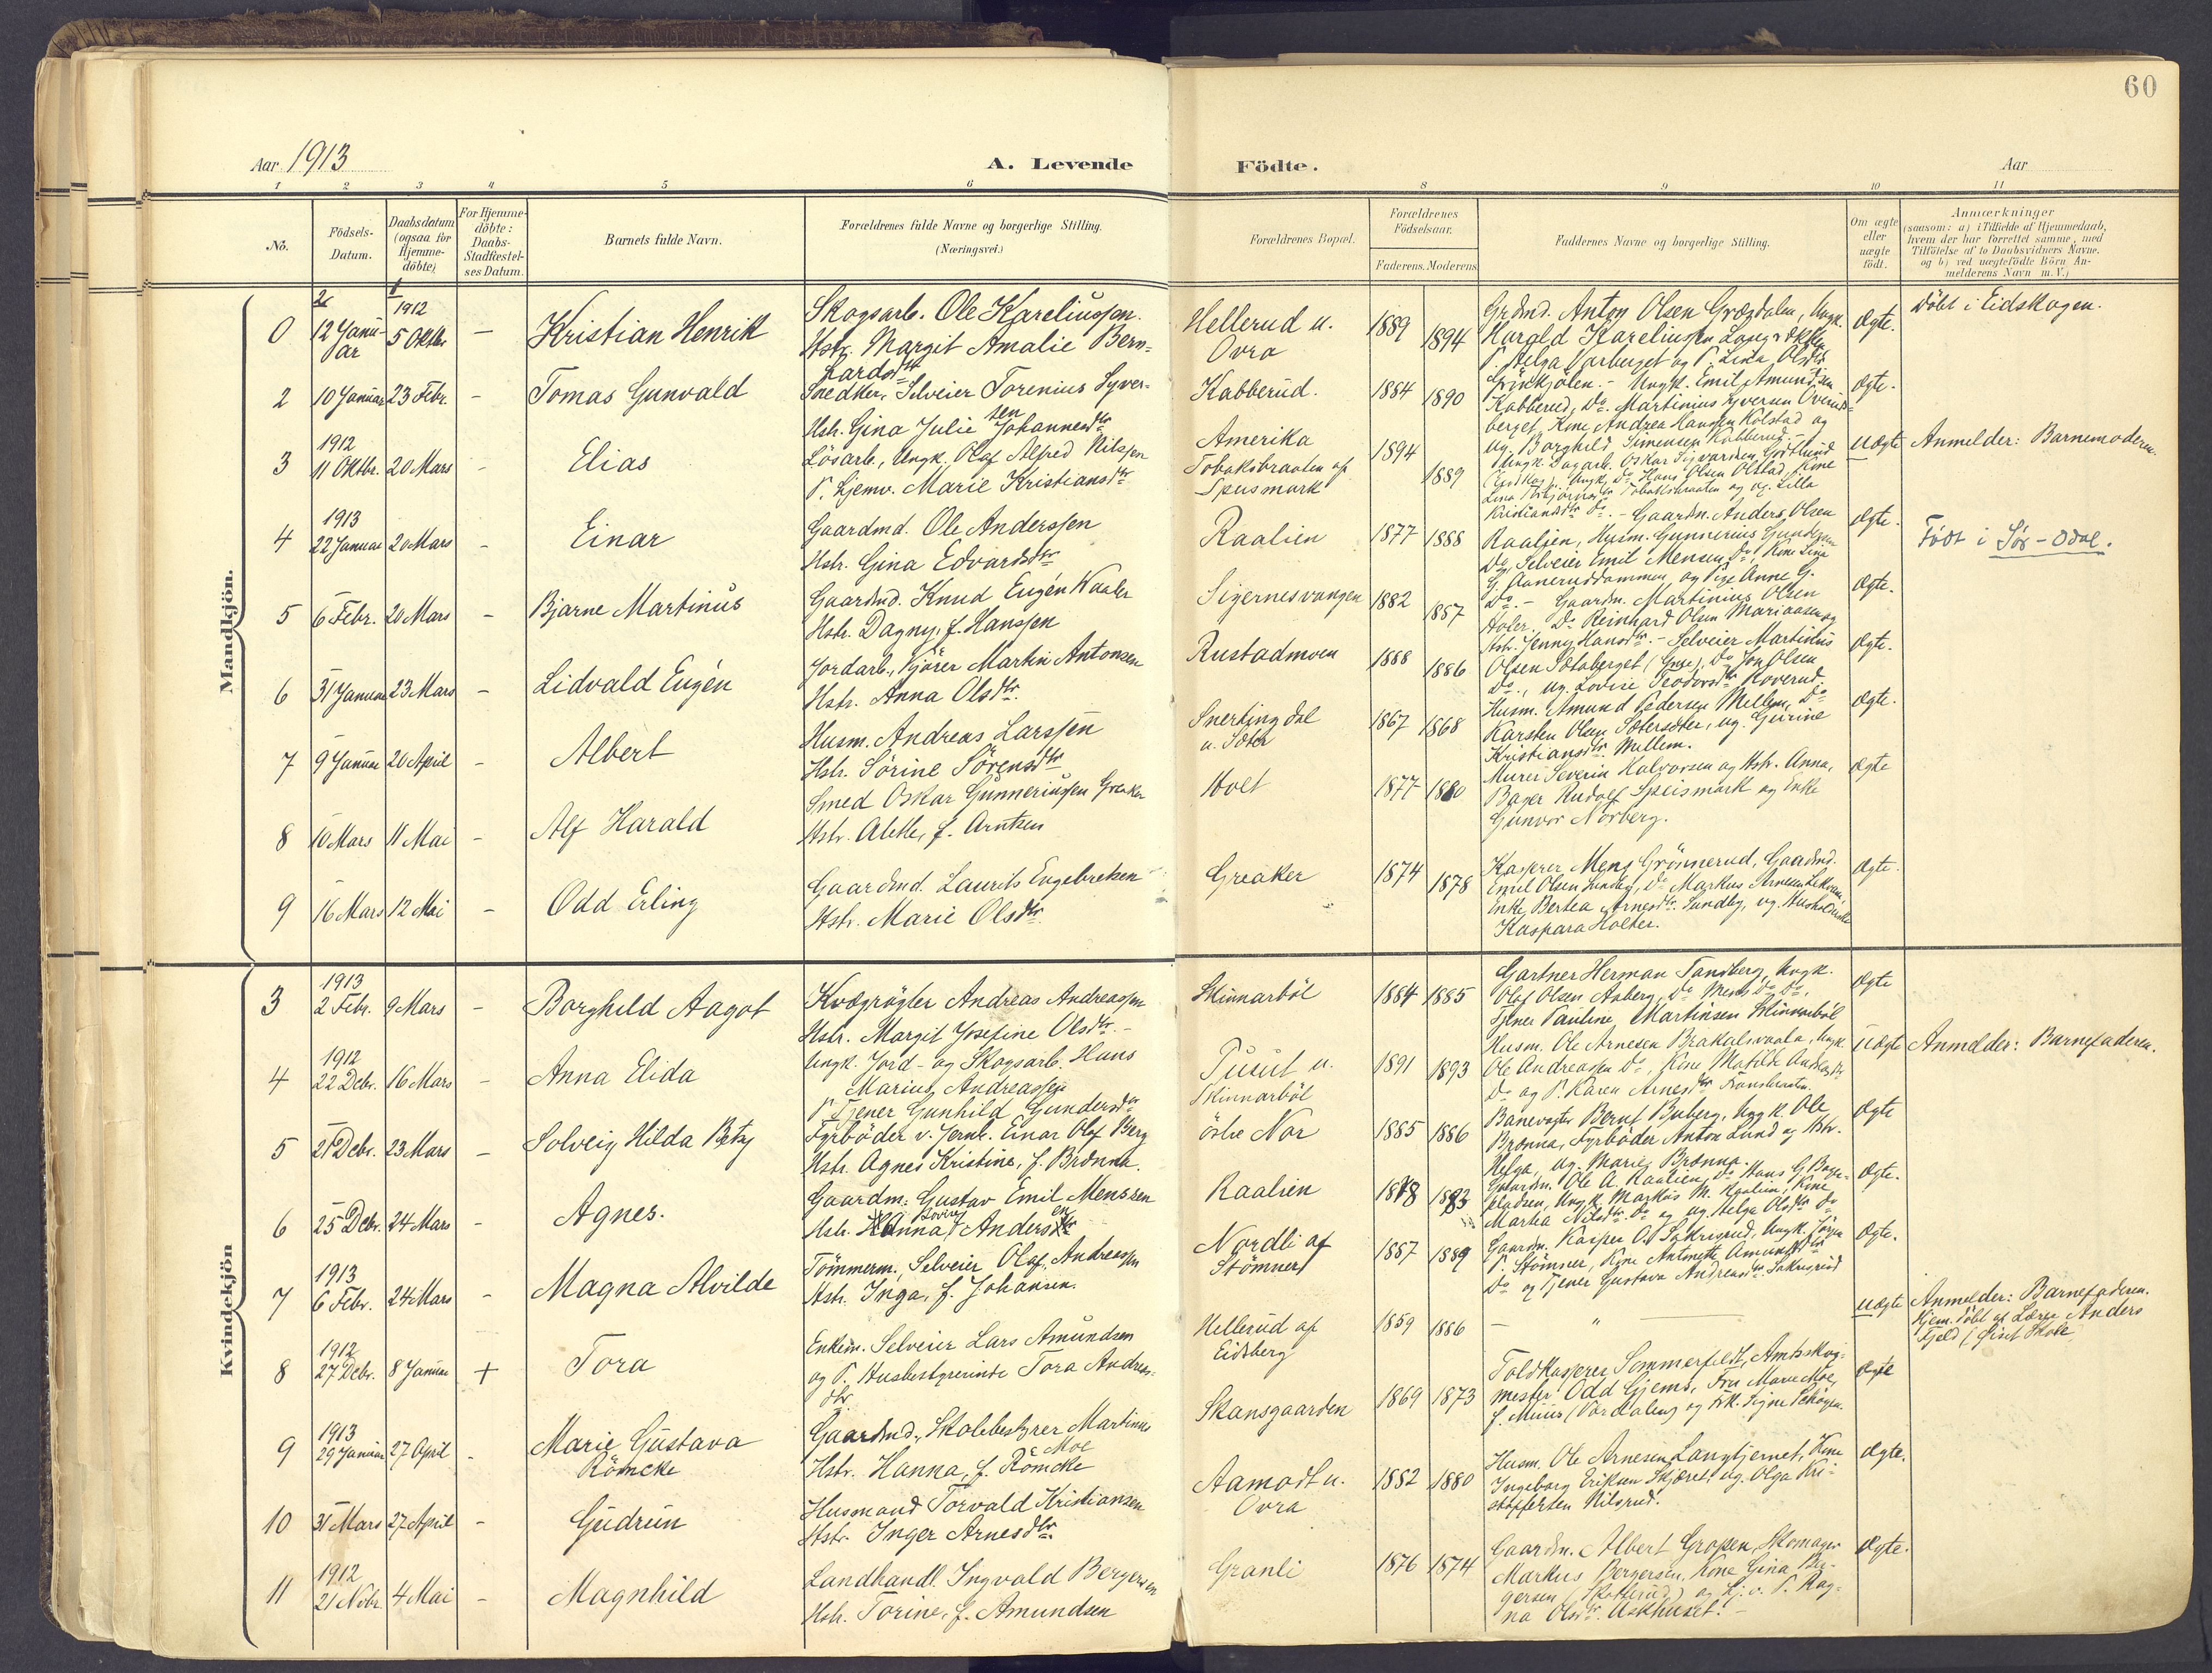 60
Aar 1913
A. Levende
Födte.
Aar
1 2 3 4 5 6 8 9 10 11
No.
Födsels-Datum.
Daabsdatum (ogsaa for Hjemme-döbte)
For Hjemme-döbte: Daabs-Stadfæstel-ses Datum.
Barnets fulde Navn.
Forældrenes fulde Navne og borgerlige Stilling. (Næringsvei.)
Forældrenes Bopæl.
Forældrenes Födselsaar.
Faderens. Moderens.
Faddernes Navne og borgerlige Stilling.
Om ægte eller uægte födt.
Anmærkninger
(saasom: a) i Tilfælde af Hjemmedaab,
hvem der har forrettet samme, med
Tilföielse af to Daabsvidners Navne.
og b) ved uægtefödte Börn An-
melderens Navn m. V.)
Mandkjön.
1912
0 12 Janu-ar 5 Oktbr. – Kristian Henrik
Skogsarb. Ole Kareliussen.
Hstr. Margit Amalie Bern-
hardsdtr
Hellerud u. Ovra 1889 1894
Grdmd. Anton Olsen Grædalen, Ungk.
Harald Kareliussen
P. Helga Varberget og P. Lina Olsdtr
Ægte. Döbt i Eidskogen.
2 10 Januar 23 Febr. – Tomas Gunvald
Snedker, Selveier Torenius Syver-
sen
Hstr. Gina Julie Johannesdtr
Kabberud. 1884 1890
Ungk. Emil Amundsen
Kabberud, Do. Martinius Syversen Överud-
berget, Kone Andrea Hansen Kolstad og
ug. Borghild Simensen Kabberud.
Ægte.
1912
3 11 Oktbr. 20 Mars – Elias
Lösarb., Ungk. Olaf Alfred Nilssen
P. hjemv. Marie Kristiansdtr
Amerika
Tobaksbraaten af Speismark 1894 1889
Ungk. Dagarb. Oskar Sigvardsen
Ungk. Do Hans Olsen Olstad, Kone
Tobaksbraaten og ug. Lilla
Kristiansdtr Do.
uægte Anmelder: Barnemoderen.
1913
4 22 Januar 20 Mars – Einar
Gaardmd. Ole Anderssen
Hstr. Gina Edvardsdtr
Raalien 1877 1888
Gaardm. Anders Olsen
Raalien, Husm. Gunnerius
Do, Selveier Emil Mensen Do, Kone Lina
G. Aaneruddammen, og Pige Anne G.
Do.
Ægte. Födt i Sör-Odal.
5 6 Febr. 20 Mars – Bjarne Martinus
Gaardmd. Knud Eugén Kaaler
Hstr. Dagny, f. Hanssen
Sigernesvangen 1882 1887
Gaardm. Martinius Olsen
Do Reinhard Olsen Mariaasen og
Hstr. Jenny Hansdtr.
Ægte.
6 31 Januar 23 Mars – Lidvald Eugén
Jordarb., Kjörer Martin Antonsen
Hstr. Anna Olsdtr.
Rustadmoen 1888 1886
Selveier Martinius
Olsen Sætaberget (Grue), Do Jon Olsen
Do., ug. Lovise Teodorsdtr Roverud.
Ægte.
7 9 Januar 20 April – Albert
Husm. Andreas Larssen
Hstr. Sörine Sörensdtr
Snertingdal u. Sæter 1867 1868
Husm. Amund Pedersen Mellem, Do
Karsten Olsen Sætersæter, ug. Gurine
Kristiansdtr. Mellem.
Ægte.
8 10 Mars 11 Mai – Alf Harald
Smed Oskar Gunneriussen Greaker
Hstr. Alette, f. Arntzen
Holt 1877 1880
Murer Severin Halvorsen og Hstr. Anna,
Bager Rudolf Speismark og Enke
Gunvor Norberg.
Ægte
9 16 Mars 12 Mai – Odd Erling
Gaardmd. Laurits Engebretsen
Hstr. Marie Olsdtr.
Greaker 1874 1878
Kasserer Mens Grönnerud, Gaardmd.
Emil Olsen Sundby, Do Markus Arnesen
Enke Bertea Arnesdtr. Sundby, ug. Husholderske
Kaspara Holter.
Ægte.
Kvindekjön
1913
3 2 Febr. 9 Mars – Borghild Aagot
Kvægrögter Andreas Andreassen
Hstr. Margit Josefine Olsdtr. –
Skinnarböl 1884 1885
Gartner Herman Tandberg, Ungk.
Olaf Olsen Aaberg, Do Mens Do Do,
Tjener Pauline Martinsen Skinnarböl
Ægte
1912
4 22 Debr. 16 Mars – Anna Elida
Ungk. Jord- og Skogsarb. Hans
Marius Andreassen
P. Tjener Gunhild Gundersdtr
Puut u. Skinnarböl 1891 1893
Husm. Ole Arnesen Brakalsvaala, Ungk.
Ole Andreassen Do, Kone Matilde Andreasdtr
Do og P. Karen Arnesdtr
uægte Anmelder: Barnefaderen.
5 21 Debr. 23 Mars – Solveig Hilda Betzy
Fyrböder v. Jernb. Einar Olaf Berg
Hstr. Agnes Kristine, f. Brænna.
östre Nor 1885 1886
Banevogter Bernt Buberg, Ungk. Ole
Brænna, Fyrböder Anton Lund og Hstr.
Helga, ug. Marie Brænna.
Ægte
6 25 Debr. 24 Mars – Agnes.
Gaardm. Gustav Emil Menssen
Hstr. Hanna Lovise Andersen
Raalien 1878 1883
Gaardm. Ole A. Raalien, Do Hans G.
Ungk. Markus M. Raalien, Kone
Martea Nilsdtr. Do og ug. Helga Olsdtr Do
Ægte.
1913
7 6 Febr. 24 Mars – Magna Alvilde
Tömmerm., Selveier Olaf Andreassen
Hstr. Inga, f. Johansen.
Nordli af Stömner 1887 1889
Gaardm. Kasper O. Sakrisrud, Ungk. Jörgen
P. Stömner, Kone Antonette Amundsdtr
Do og Tjener Gustava Andreasdtr. Sakrisrud
Ægte.
1912
8 27 Debr. 8 Januar + Tora
Enkem. Selveier Lars Amundsen
og P. Husbestyrerinde Tora Andreas-
dtr.
Hellerud af Eidsberg 1859 1886
– " –
uægte Anmelder: Barnefaderen.
Hjem. döbt af Lærer Anders
Fjeld
1913
9 29 Januar 27 April – Marie Gustava
Römcke
Gaardmd., Skolebestyrer Martinus
Moe
Hstr. Hanna, f. Römcke
Skansgaarden 1869 1873
Toldkasserer Sommerfeldt, Amtsskog-
mester Odd Gjems, Fru Marie Moe,
f. Müür (Vardalen) og Frk. Signe Schöyen.
Ægte
10 31 Mars 27 April – Gudrun
Husmand Torvald Kristiansen
Hstr. Inger Arnesdtr.
Aamodt u. Ovra 1882 1880
Husm. Ole Arnesen Langtjernet, Kone
Ingeborg Eriksen Skjæret, ug. Olga Kri-
stoffersen Nilsrud.
Ægte.
1912
11 21 Nobr. 4 Mai – Magnhild
Landhandl. Ingvald Bergersen
Hstr. Torine, f. Amundsen
Granli 1876 1874
Gaardm. Albert Gropen, Skomager
Markus Bergersen, Kone Gina Ber-
gersen (Skotterud) og hj.v. P. Rag-
na Olsdtr. Askhuset. –
Ægte.